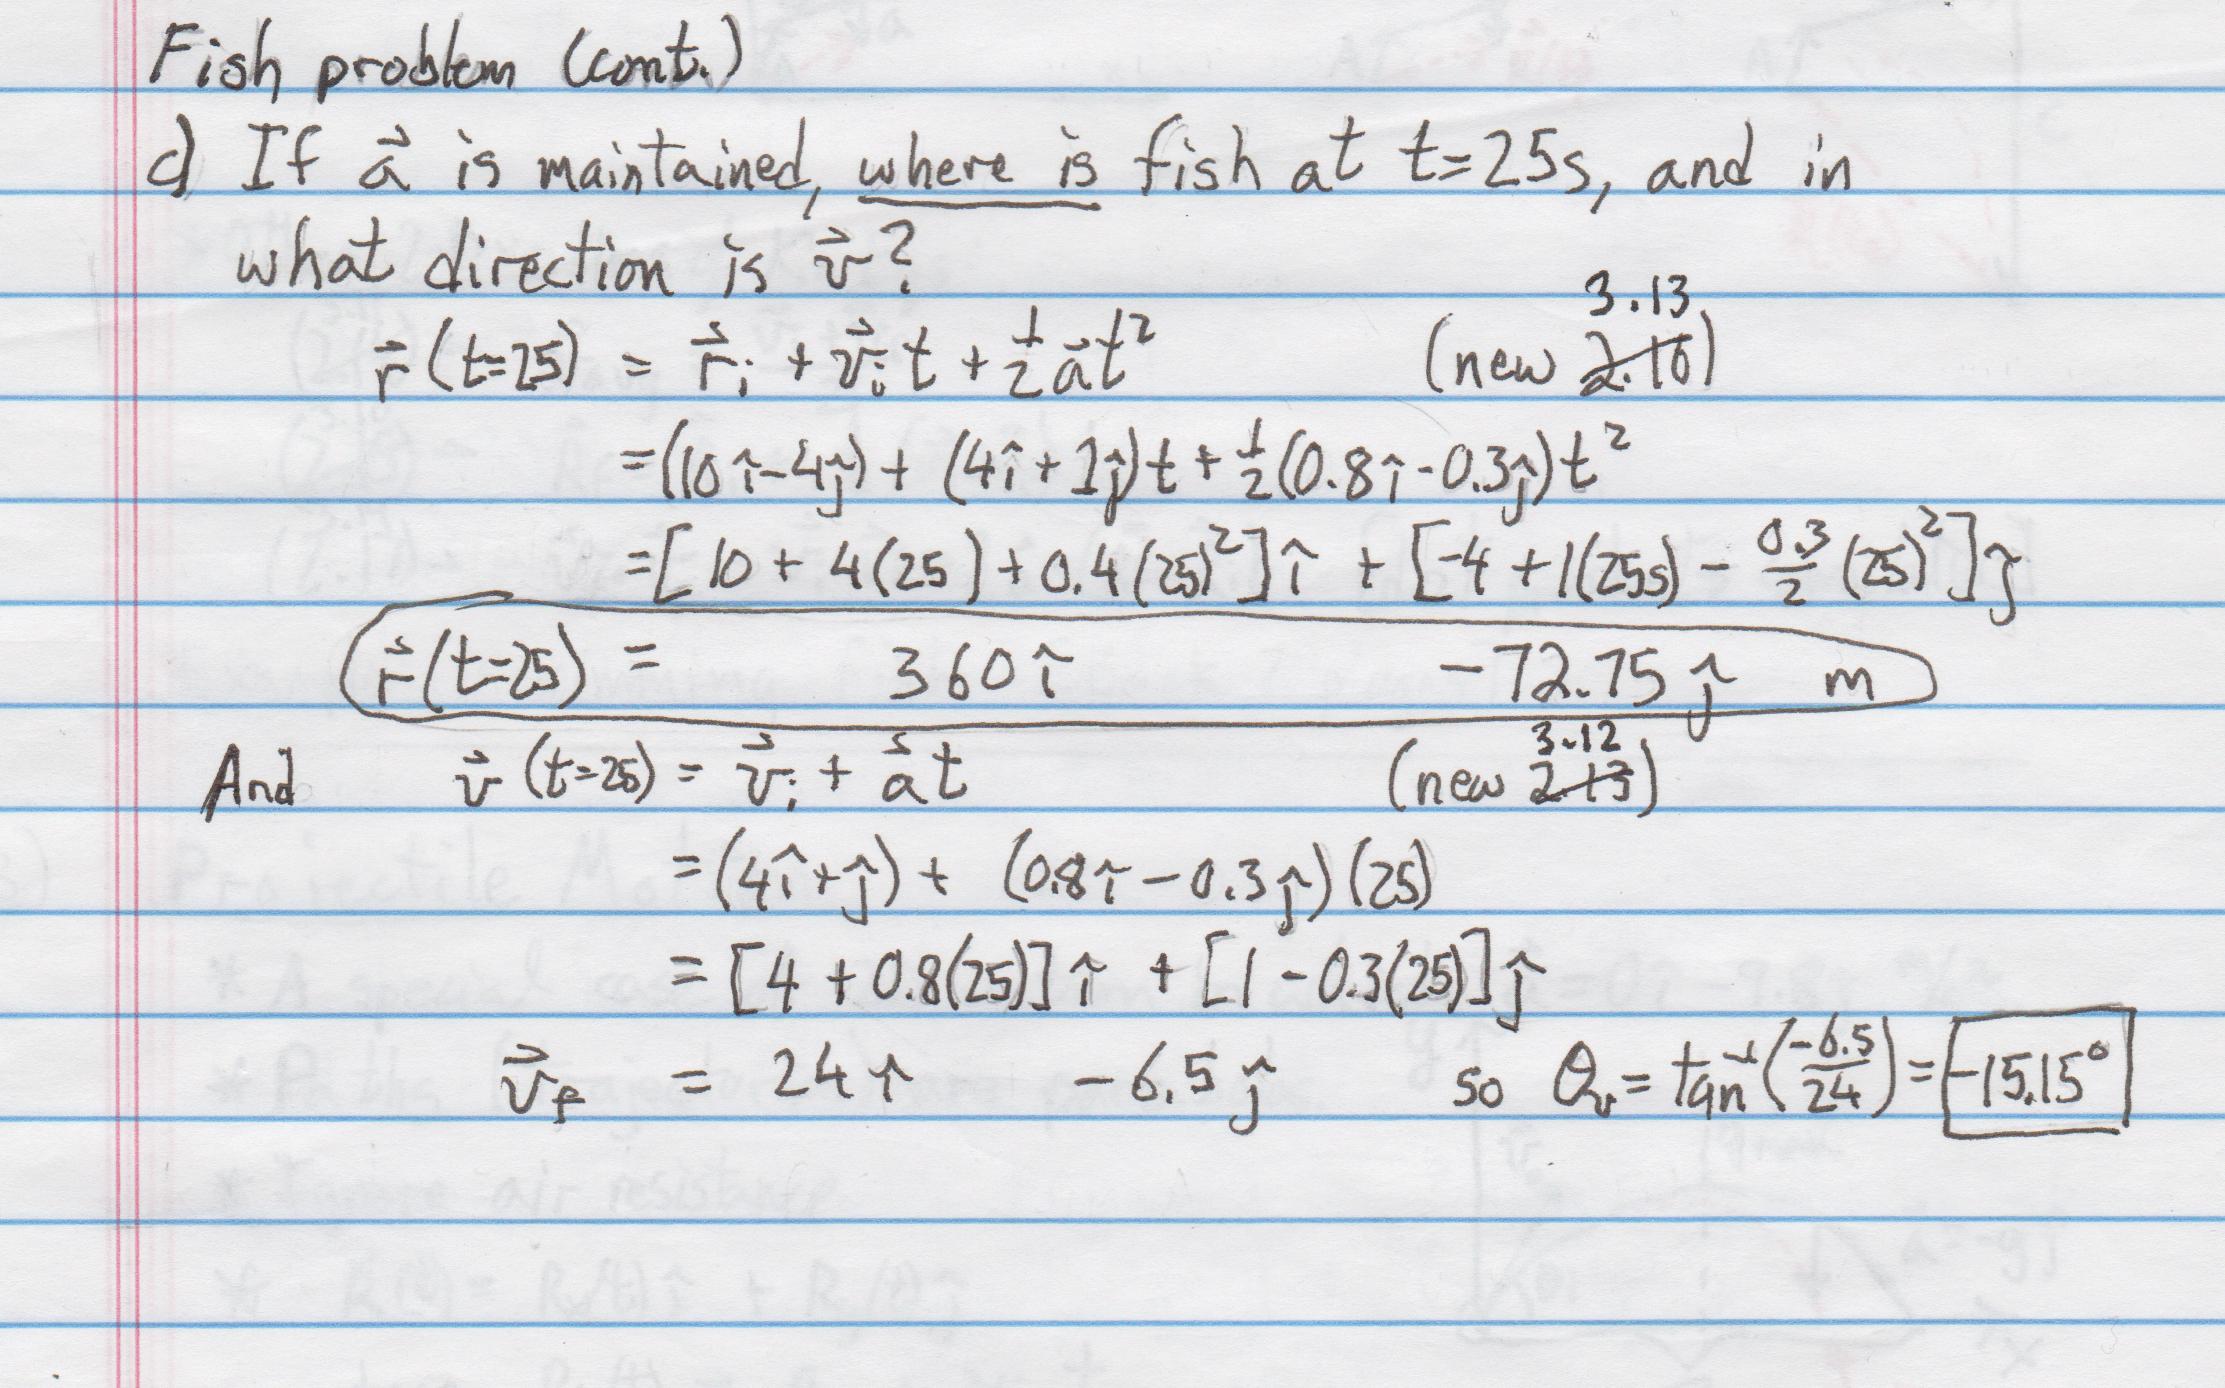 Fish problem (cont.)
c) If a⃗ is maintained, where is fish at t=25s, and in
what direction is v⃗?
3.13
r⃗ (t=25) = r⃗ᵢ + v⃗ᵢt + ½a⃗t² (new 2.10)
=(10î-4ĵ) + (4î+1ĵ)t + ½(0.8î-0.3ĵ)t²
=[10 + 4(25) + 0.4(25)²]î + [-4 + 1(25s) - 0.3/2 (25)²]ĵ
r⃗(t=25) = 360î -72.75ĵ m
3.12
And v⃗ (t=25) = v⃗ᵢ + a⃗t (new 2.13)
=(4î+ĵ) + (0.8î-0.3ĵ)(25)
= [4 + 0.8(25)]î + [1 - 0.3(25)]ĵ
v⃗f = 24î -6.5ĵ so θᵥ = tan⁻¹(-6.5/24) = -15.15°